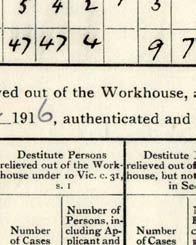 5 4 2 3
47 47 4 9 7
ved out of the Workhouse,
1916, authenticated and
Destitute Persons
relieved out of the Work-
house under 10 Vic. c. 31,
s. 1
Destitute
relieved out of
house, but not
in Se
Number
of Cases
Number of
Persons, in-
cluding Ap-
plicant and
Number
of Cases